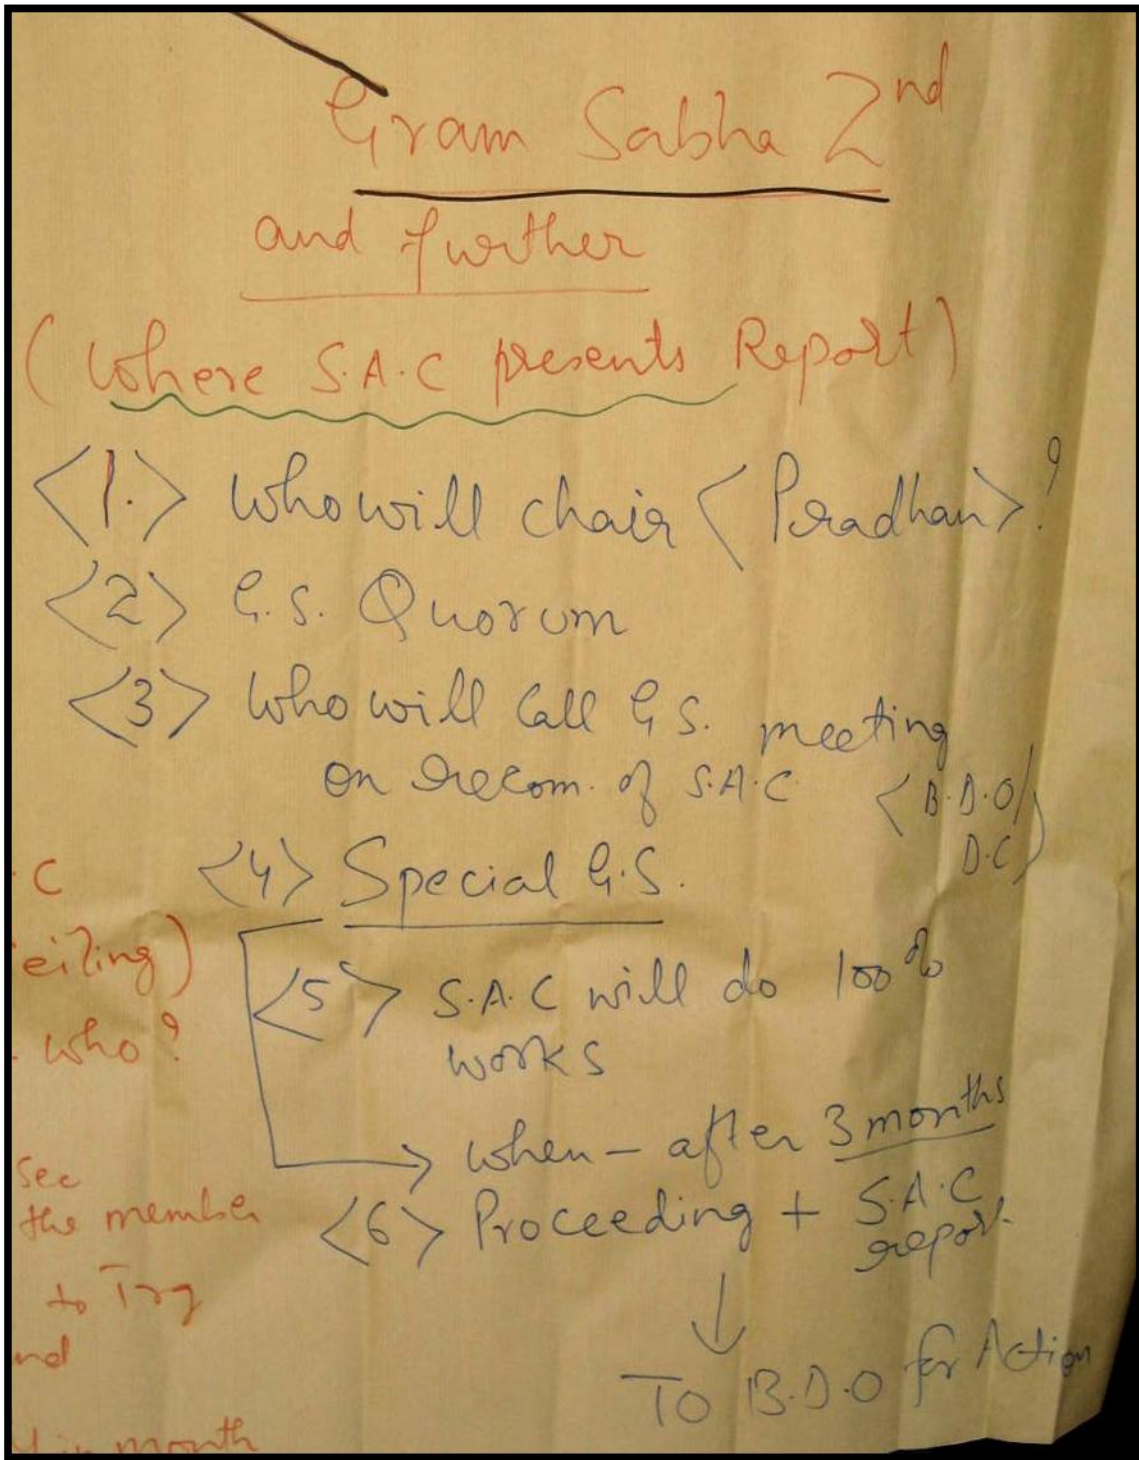 Gram Sabha 2nd
and further
(where S.A.C presents Report)
<1.> who will chair <Pradhan>?
<2> G.S. Quorum
<3> who will call G.S. meeting
on recom. of S.A.C. <B.D.O/
D.C)
<4> Special G.S.
<5> S.A.C will do 100%
works
→ when - after 3 months
<6> Proceeding + S.A.C
report.
↓
To B.D.O for Action
. C
eiling)
. who?
see
the member
to Trg
nd
in month